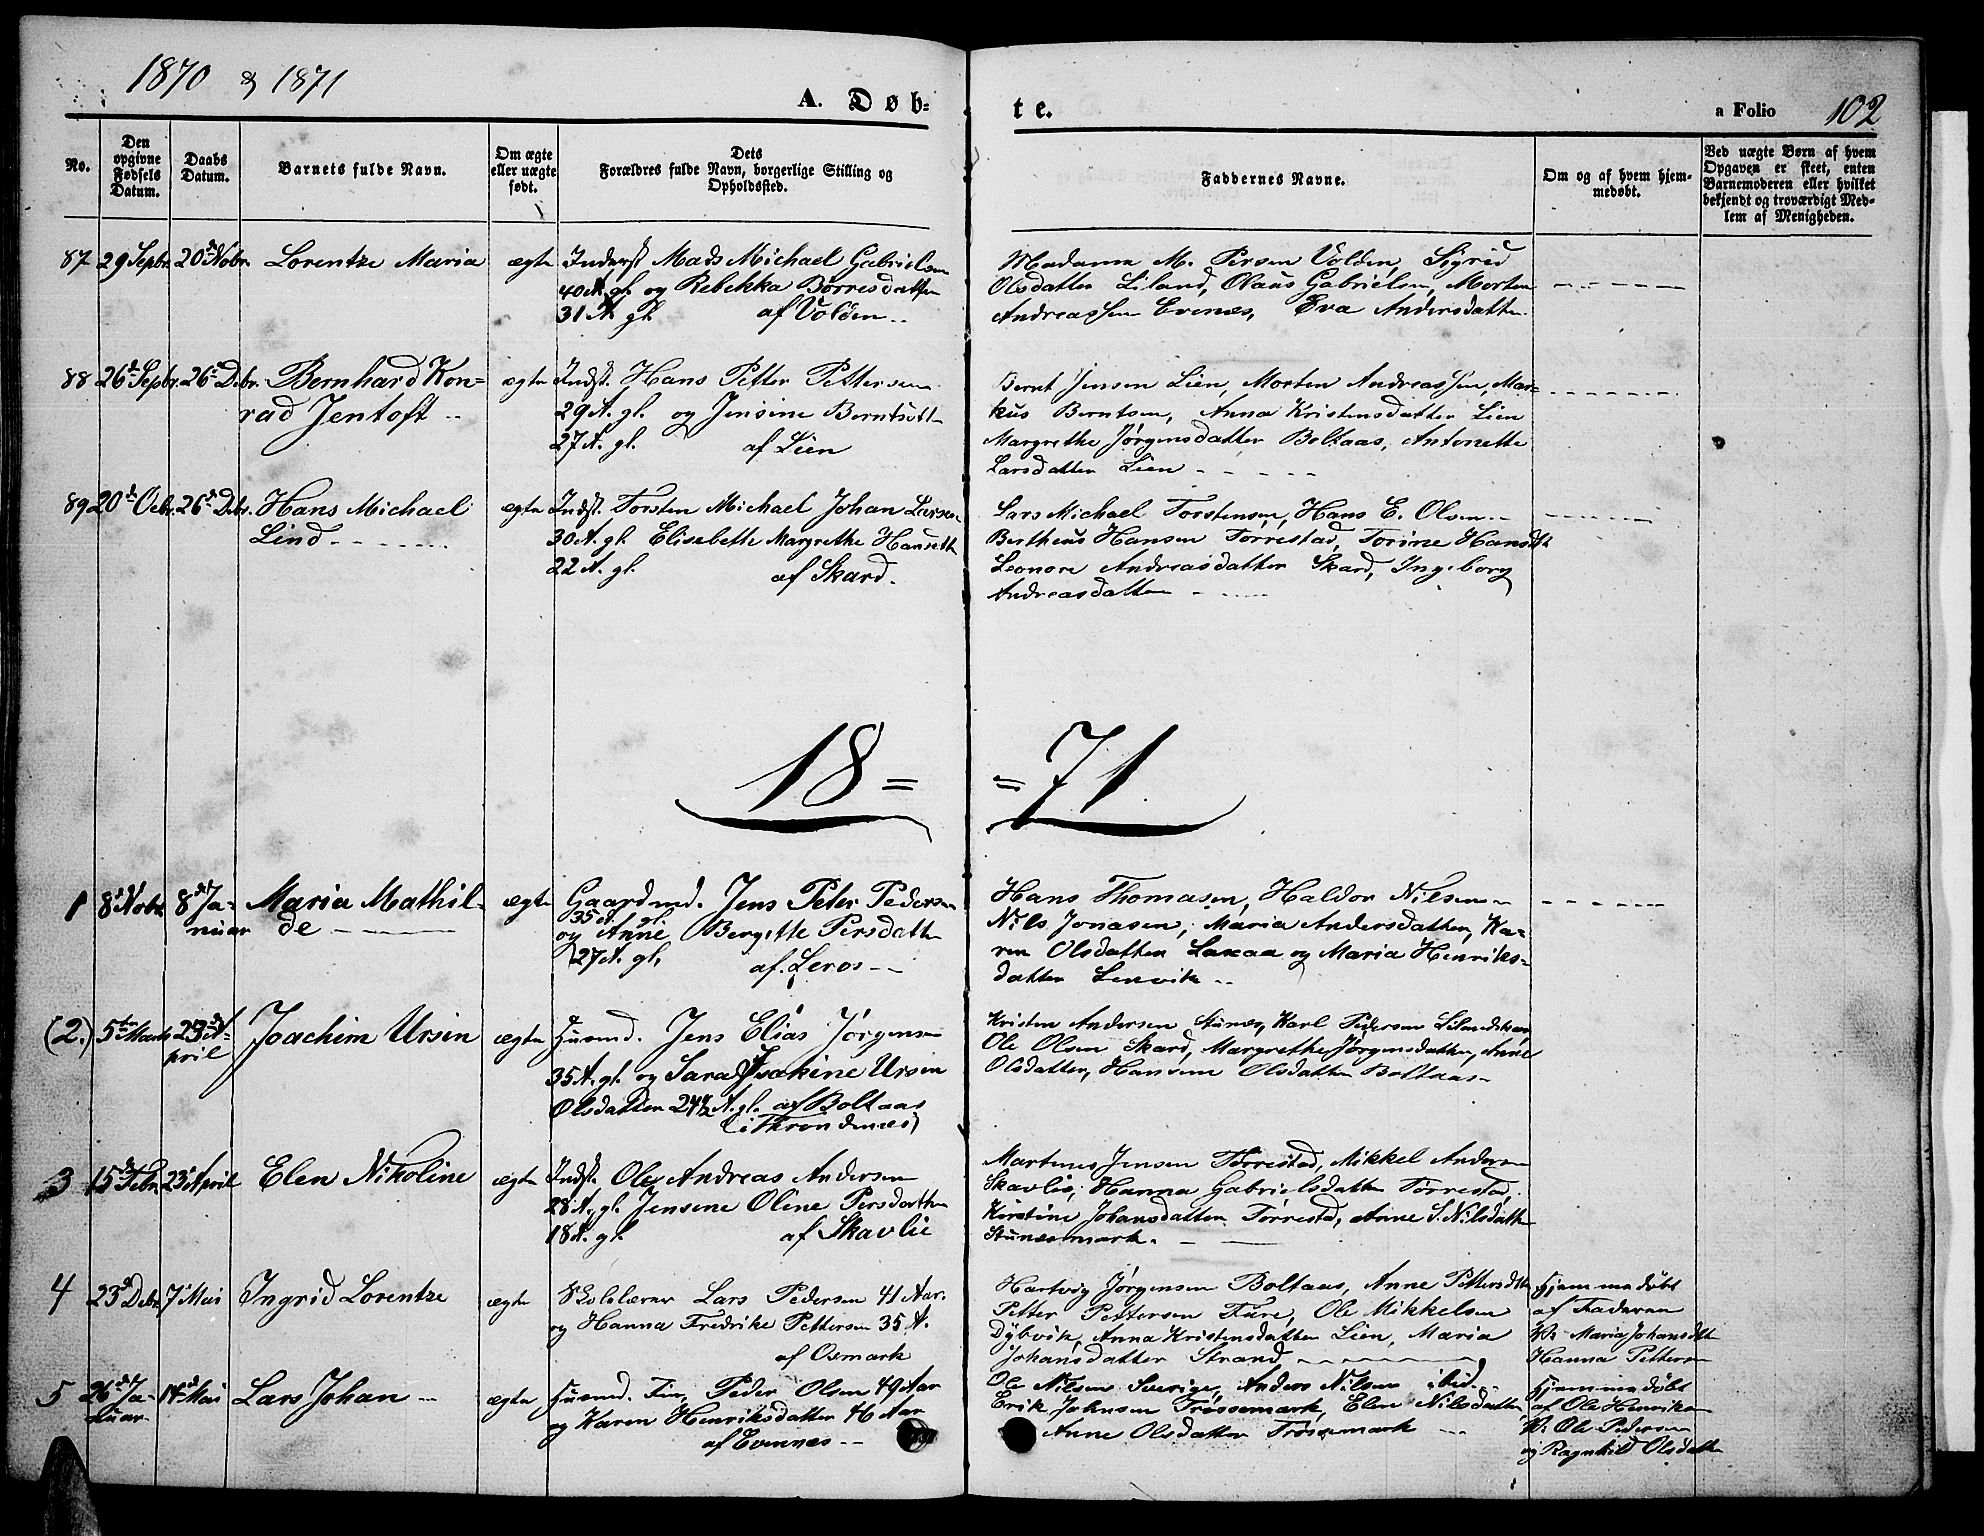 1870 & 1871
A. Døb=
te.
a Folio 102
No.
Den opgivne Fødsels Datum.
Daabs Datum.
Barnets fulde Navn.
Om ægte eller uægte født.
Dets Forældres fulde Navn, borgerlige Stilling og Opholdssted.
Faddernes Navne.
Om og af hvem hjem-medøbt.
Ved uægte Børn af hvem
Opgaven er skeet, enten
Barnemoderen eller hvilket
bekjendt og troværdigt Med-
lem af Menigheden.
87 29 Sepbr. 20de Nobr. Lorentze Maria ægte Inderst Mads Michael Gabrielsen
40 A. gl. og Rebekka Børresdatter
31 A. gl. af Volden
Madame M. Persen Volden, Sigrid
Olsdatter Liland, Olaus Gabrielsen, Morten
Andreassen Evenes, Eva Andersdatter
88 26de Sepbr. 26de Debr. Bernhard Kon=
rad Jentoft
ægte Indst. Hans Petter Pettersen
29 A. gl. og Jensine Berntsdtt
27 A. gl. af Lien
Bernt Jensen Lien, Morten Andreassen, Mar=
kus Berntsen, Anna Kristensdatter Lien
Margrethe Jørgensdatter Boltaas, Antonette
Larsdatter Lien
89 20de Ocbr. 26de Debr. Hans Michael
Lind
ægte Indst. Torsten Michael Johan Larsen
30 A. gl. Elisabette Margrethe Hansdtt
22 A. gl. af Skard.
Lars Michael Torstensen, Hans E. Olsen
Bertheus Hansen Tørrestad, Torine Hansdtt
Leonore Andreasdatter Skard, Ingeborg
Andreasdatter
18= =71
1 8de Nobr. 8de Ja-
nuar
Maria Mathil-
de
ægte Gaardmd. Jens Peter Pedersen
35 A. gl.
og Anne Bergitte Persdatter
27 A. gl. af Leros
Hans Thomasen, Haldor Nilsen
Nils Jonasen, Maria Andersdatter, Ka-
ren Olsdatter Laxaa og Maria Henriks=
datter Lenvik
(2.) 5te Marts 23de A-
pril
Joachim Ursin ægte Husmd. Jens Elias Jørgensen
35 A. gl. og Sara Isakine Ursin
Olsdatter 24½ A. gl. af Boltaas
(i Throndenæs)
Kristen Andersen Stunes, Karl Pedersen
Ole Olsen Skard, Margrethe Jørgensdatter, Anne
Olsdatter, Hansine Olsdatter Boltaas
3 15de Febr. 23de April Elen Nikoline ægte Indst. Ole Andreas Andersen
28 A. gl. Jensine Oline Persdatter
18 A. gl. af Skavlie
Martinus Jensen Tørrestad, Mikkel Andersen
Skavlie, Hanna Gabrielsdatter Tørrestad,
Kirstine Johansdatter Tørrestad, Anne S. Nilsdatter
Stunesmark.
4 23de Debr. 7de Mai Ingrid Lorentze ægte Skolelærer Lars Pedersen 41 Aar.
og Hanna Fredrike Pettersen 35 A.
af Osmark
Hartvig Jørgensen Boltaas, Anne Pettersdtt
Petter Pettersen Fure, Ole Mikkelsen
Dybvik, Anna Kristensdatter Lien, Maria
Johansdatter Strand
Hjemmedøbt
af Faderen
V. Maria Johansdtt
Hanna Pettersen
5 26de Ja-
nuar
14de Mai Lars Johan ægte Husmd. Fin, Peder Olsen 49 Aar
og Karen Henriksdatter 46 Aar
af Evennes
Ole Nilsen Sverige, Anders Nilsen ibid.
Erik Johnsen Trøssemark, Elen Nilsdatter,
Anne Olsdatter Trøsemark
Hjemmedøbt
af Ole Henriksen
V. Ole Pedersen
og Ragnhild Olsdatter